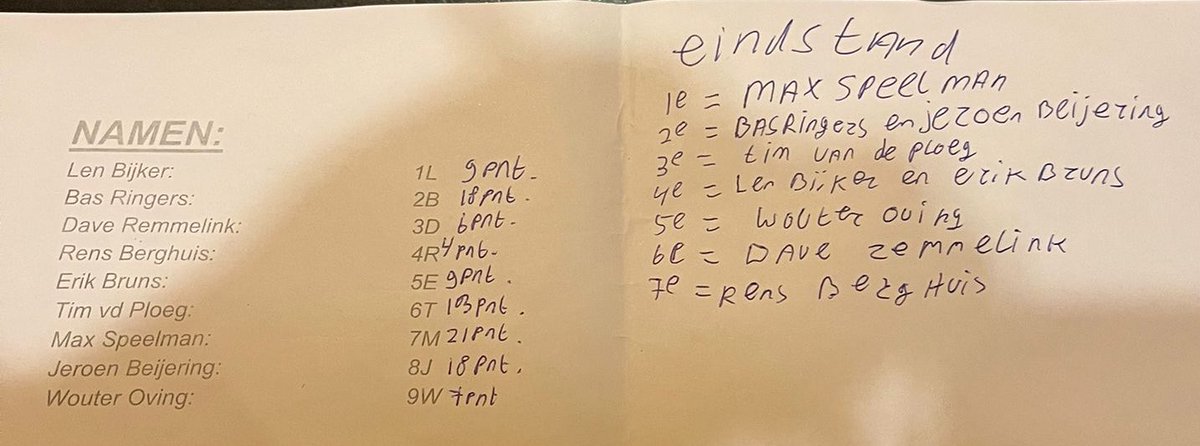 NAMEN:
Len Bijker: 1L 9 pnt.
Bas Ringers: 2B 18 pnt.
Dave Remmelink: 3D 6 pnt.
Rens Berghuis: 4R 4 pnt.
Erik Bruns: 5E 9 pnt.
Tim vd Ploeg: 6T 13 pnt.
Max Speelman: 7M 21 pnt.
Jeroen Beijering: 8J 18 pnt.
Wouter Oving: 9W 7 pnt
eindstand
1e = MAX SPeelMAn
2e = BAS Ringers en jeroen Beijering
3e = tim van de ploeg
4e = Len Bijker en erik Bruns
5e = wouter oving
6e = DAve remmelink
7e = Rens Berghuis